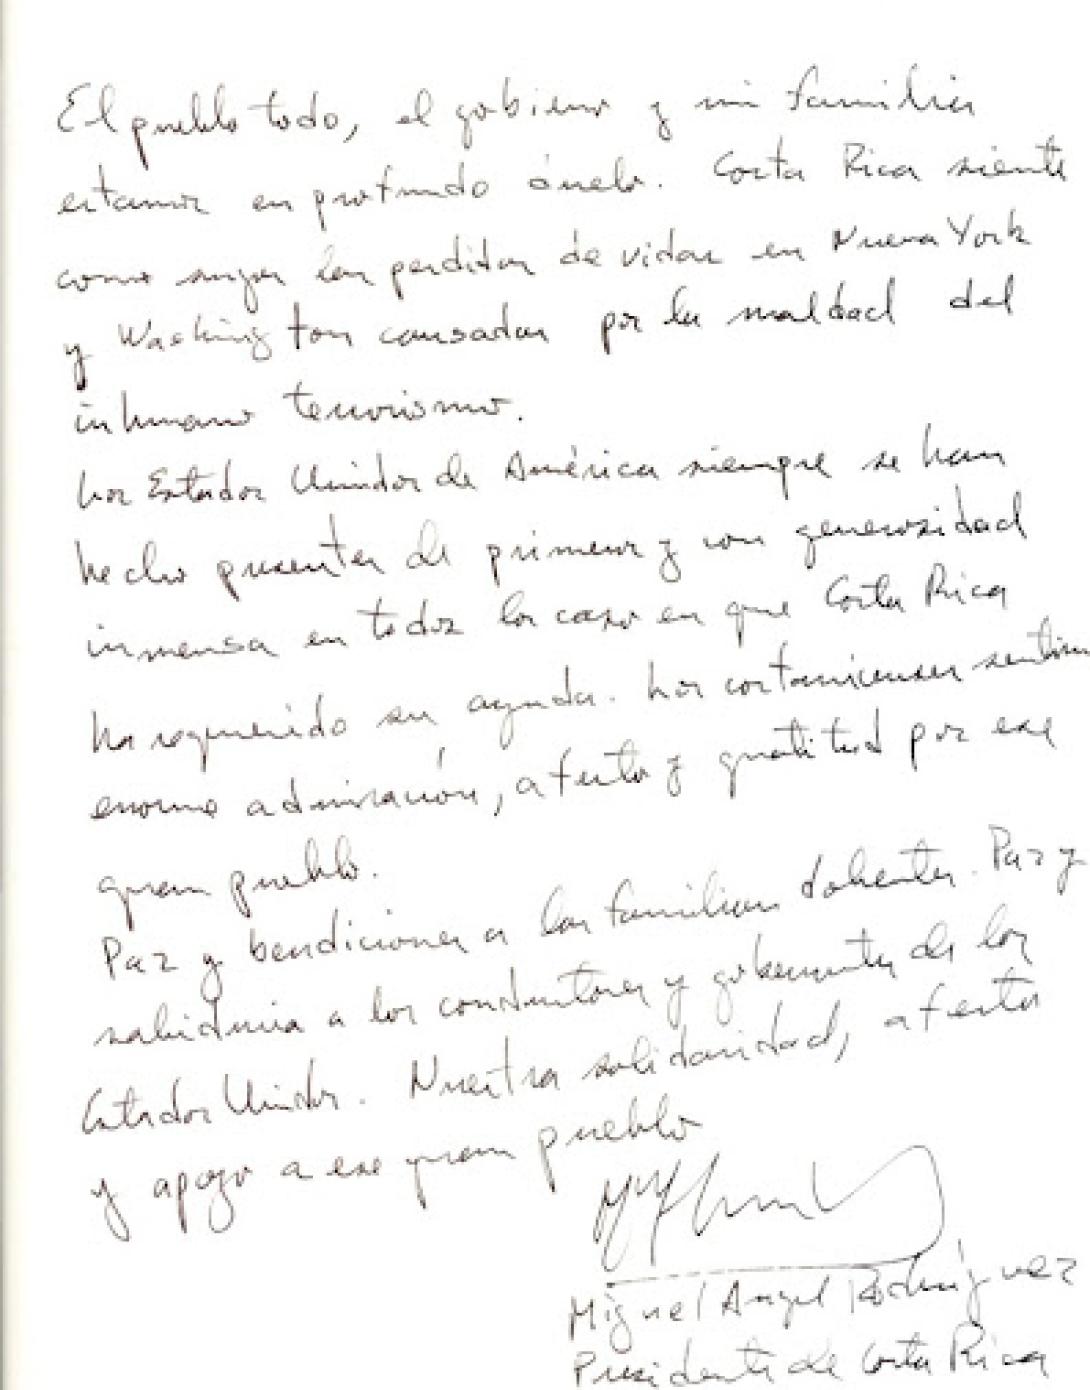 El pueblo todo, el gobierno y mi familia
estamos en profundo duelo. Costa Rica siente
como suyas las perdidas de vidas en Nueva York
y Washington causadas por la maldad del
inhumano terrorismo.
Los Estados Unidos de América siempre se han
hecho presentes de primeros y con generosidad
inmensa en todos los casos en que Costa Rica
ha requerido su ayuda. Los costarricenses sentimos
enorme admiración, afecto y gratitud por ese
gran pueblo.
Paz y bendiciones a las familias dolientes. Paz y
sabiduría a los conductores y gobernantes de los
Estados Unidos. Nuestra solidaridad, afecto
y apoyo a ese gran pueblo
Miguel Angel Rodríguez
Presidente de Costa Rica